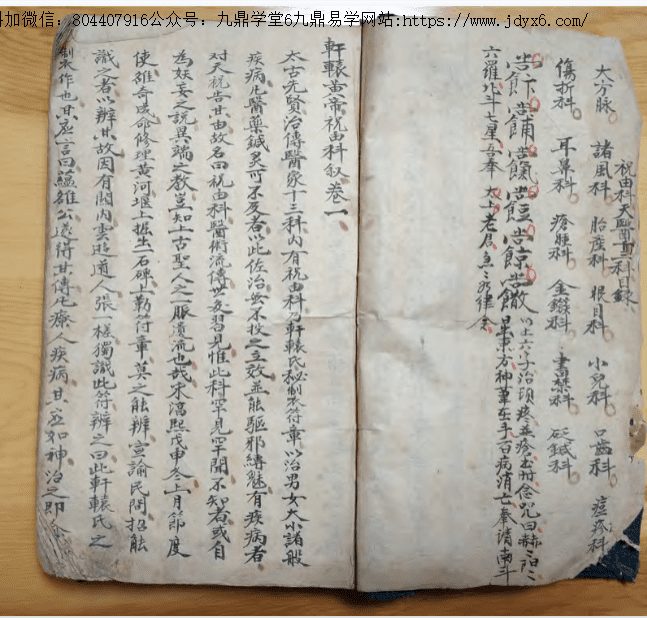 加微信：804407916公众号：九鼎学堂6九鼎易学网站:https://www.jdyx6.com/
祝由科天醫十三科目錄
大方脉 諸風科 胎產科 眼目科 小兒科 口齒科 痘疹科
傷折科 耳鼻科 瘡腫科 金鏃科 書禁科 砭鍼科
以上六字治頭疼並瘡書時念咒曰赫赫陽陽
日出東方神筆在手百病消亡奉請南斗
六羅北斗七星吾奉 太上老君急急如律令
軒轅黃帝祝由科叙卷一
太古先賢治傳醫家十三科內有祝由科乃軒轅氏秘製符章以治男女大小諸般
疾病凡醫藥鍼灸可不及者以此佐治無不投之立效並能驅邪縛魅有疾病者
对天祝告其由故名曰祝由科醫術流傳世多習見惟此科罕見罕聞不知者或自
為妖妄之說異端之教豈知上古聖人之一服潰流也哉宋淳熙戊申冬上月節度
使雒奇成命修理黃河堰上掘出一石碑上勒符章莫之能辨宣諭民間招能
識之者以辨其故因有關內雲遊道人張一樣獨識此符辨之曰此軒轅氏之
製作也其虛言曰蘊雒公遂得其傳凡療人疾病其应如神治之即